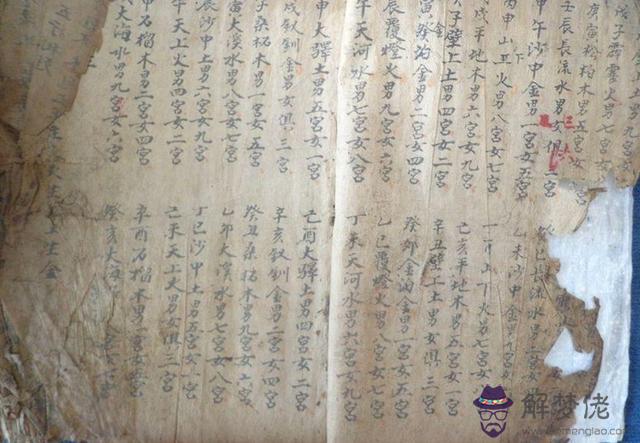 戊子霹靂火男七宮女
庚寅松柏木男五宮女
壬辰長流水男女俱三宮
甲午沙中金男一宮女五宮
丙申山下火男八宮女七宮
戊戌平地木男六宮女九宮
子壁上土男四宮女二宮
寅金泊金男二宮女四宮
辰覆燈火男九宮女六宮
午天河水男七宮女八宮
申大驛土男五宮女一宮
戌釵釧金男女俱三宮
子桑柘木男一宮女五宮
寅大溪水男八宮女七宮
辰沙中土男六宮女九宮
午天上火男四宮女二宮
申石榴木男二宮女四宮
大海水男九宮女六宮
巳長流水男
乙未沙中金男九宮
火男七宮女
己亥平地木男五宮女一
辛丑壁上土男女俱三宮
癸卯金泊金男一宮女五宮
乙巳覆燈火男八宮女七宮
丁未天河水男六宮女九宮
己酉大驛土男四宮女二宮
辛亥釵釧金男二宮女四宮
癸丑桑柘木男九宮女六宮
乙卯大溪水男七宮女八宮
丁巳沙中土男五宮女一宮
己未天上火男女俱三宮
辛酉石榴木男一宮女五宮
癸亥大海水
解梦佬
www.jiemenglao.com